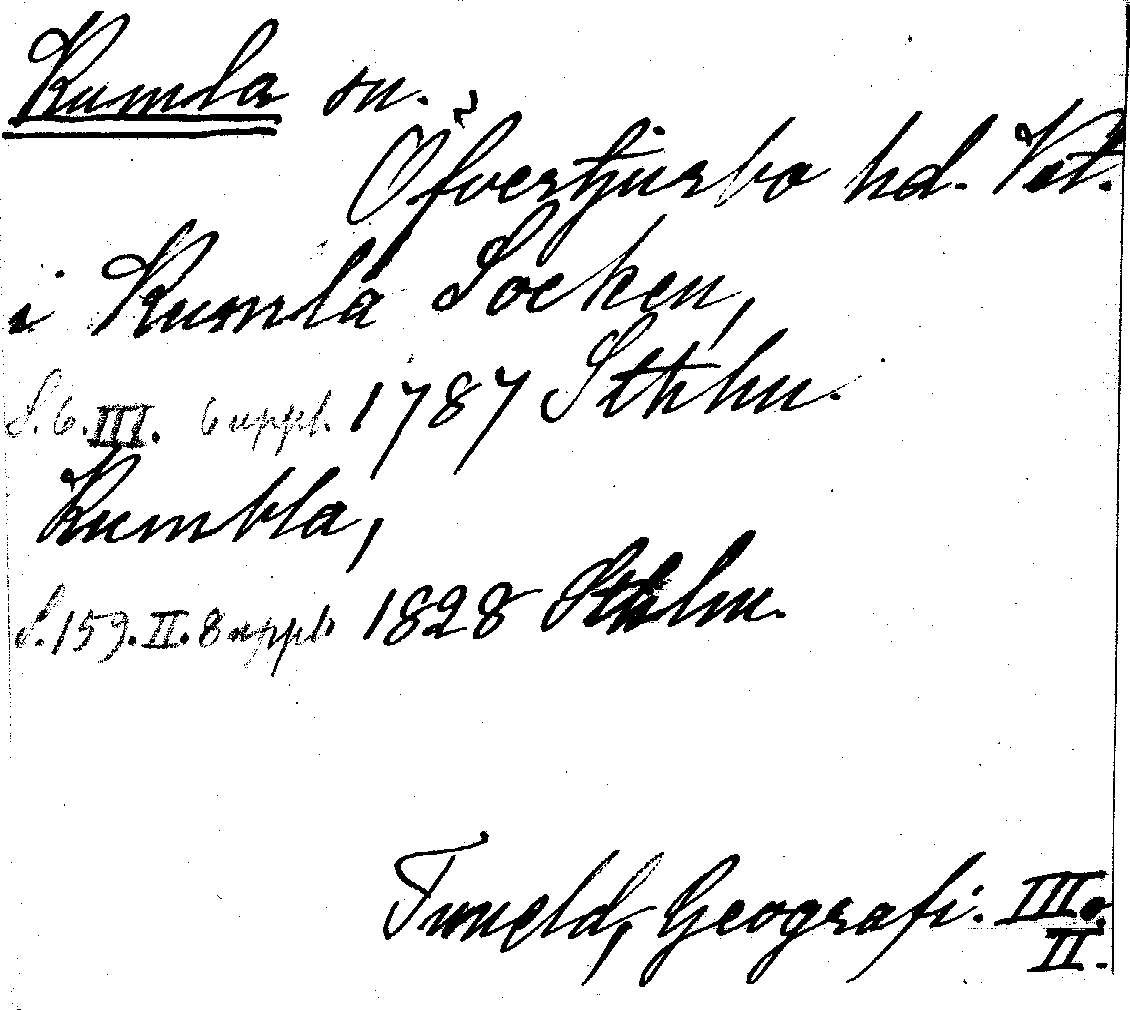 Kumla sn.
Öfvertjurbo hd. Vst.
i Kumla Socken,
S. 6. III. 6 uppl. 1787 Sthlm.
Kumbla,
S. 159. II. 8 uppl. 1828 Sthlm.
Tuneld, Geografi. III.
II.